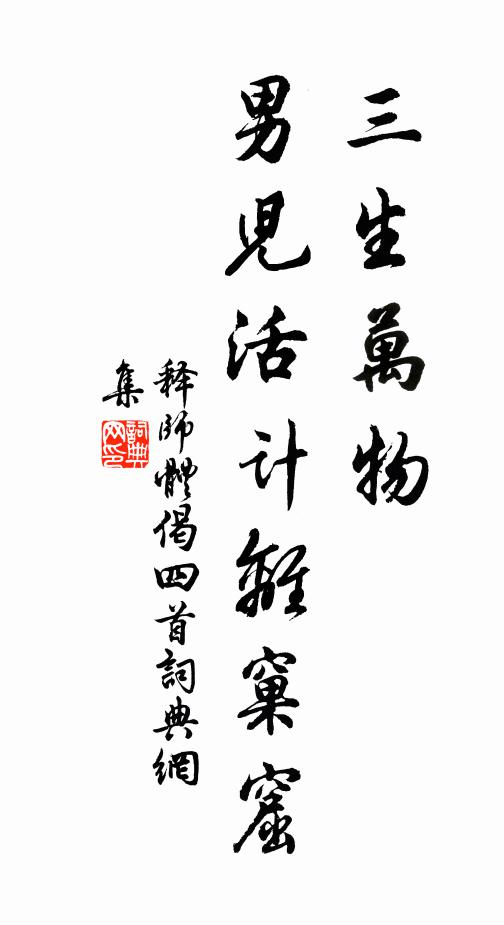 三生萬物
男児活计離窠窟
释師體偈四首詞典網
集
詞典
网印